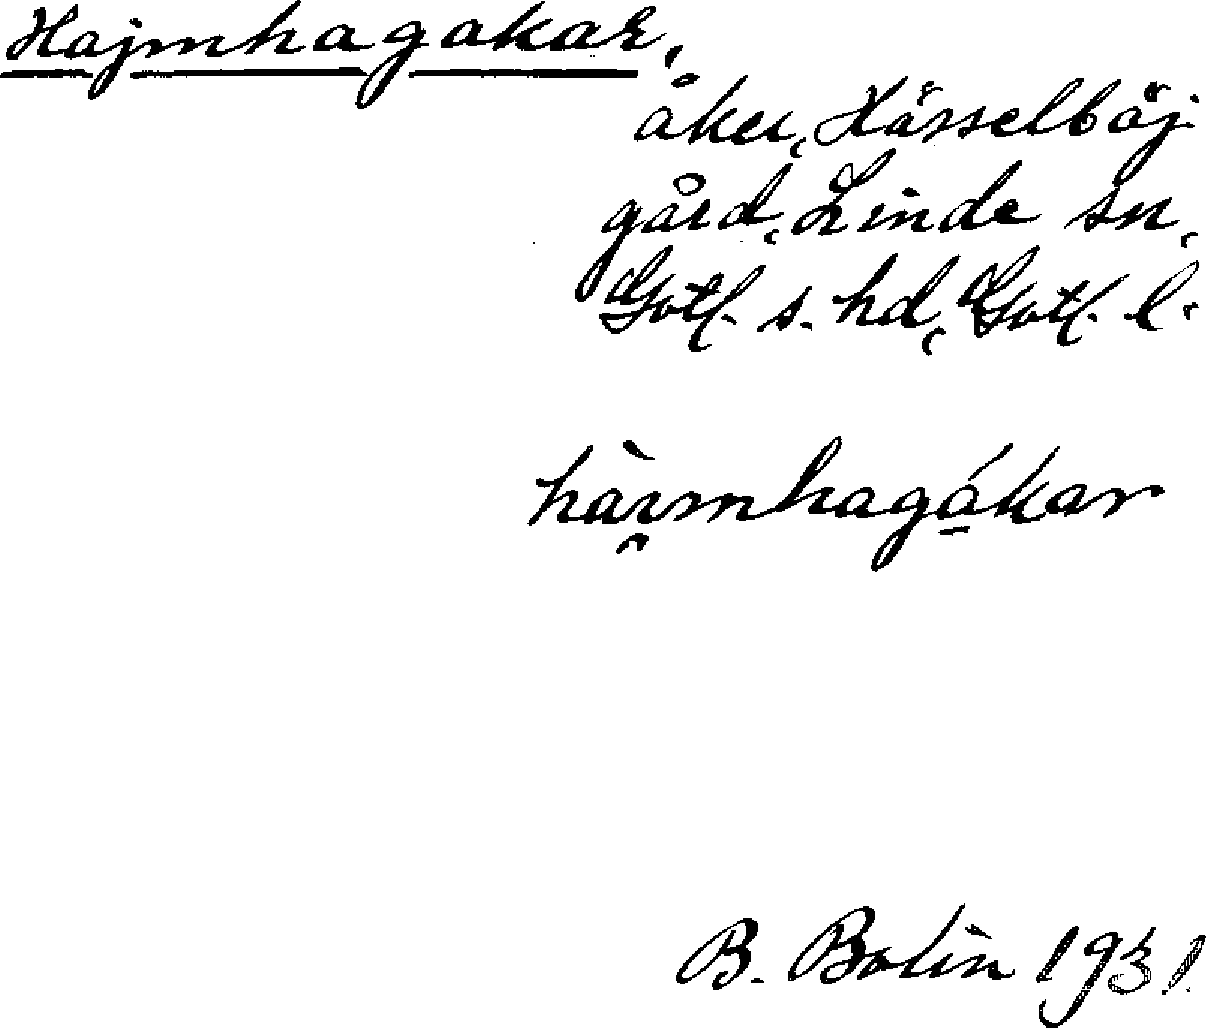 Hajmhagakar,
åker, Hässelbäj
gård, Linde sn,
Gotl. s. hd, Gotl. l.
hàı̯mhagákar
B. Bolin 1931